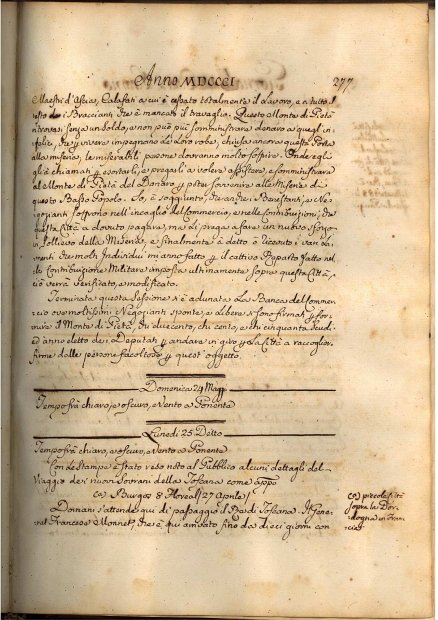 Anno MDCCCI
277
Maestri d'Ascia, Calafati a cui è cessato totalmente il Lavoro, e a tutto il
resto de i Braccianti che è mancato il travaglio. Questo Monte di Pietà
si trova senza un soldo, e non può più somministrare denaro a quegl'in-
felici, che per vivere impegnano le loro robe, chiusa ancora questa Porta
alla miseria, le miserabili persone dovranno molto soffrire. Onde egli
gl'à chiamati per esortarli, e pregarli a volere assistere, e somministrare
al Monte di Pietà del Denaro per poter sovvenire alle Miserie di
questo Basso Popolo. So, à soggiunto, che anche i Benestanti, e Ne-
gozianti soffrono nell'incaglio del Commercio, e nelle Contribuzioni, che
questa Città à dovuto pagare, ma li prega a fare un nuovo sforzo
in sollievo della Miseria, e finalmente à detto
che molti Individui mi anno fatto per il cattivo Riparto fatto nel-
la Contribuzione Militare imposta ultimamente sopra questa Città,
ciò verrà verificato, e modificato.
Terminata questa Sessione si è adunata La Banca del Commer-
cio ove moltissimi Negozianti sponte e Libere si son firmati per for-
nire il Monte di Pietà, chi duecento, chi cento, e chi cinquanta Scudi
ed anno eletto dei Deputati per andare in giro per la Città a raccoglier
firme dalle persone facoltose per quest'oggetto.
Domenica 24 Magg.
Tempo frà chiaro, e oscuro, e Vento a Ponente
Lunedi 25. Detto
Tempo frà chiaro, e oscuro, e Vento a Ponente
Con le stampe è stato reso noto al Pubblico alcuni dettagli del
Viaggio de i nuovi Sovrani della Toscana come app.o
Burgos 8 Floreal (27 Aprile)
Domani s'attende qui di passaggio il Re di Toscana. Il Gene-
ral Francese Monnet, che è qui arrivato fino da dieci giorni con
piccola Città
sopra la Dor-
dogna in Fran-
cia